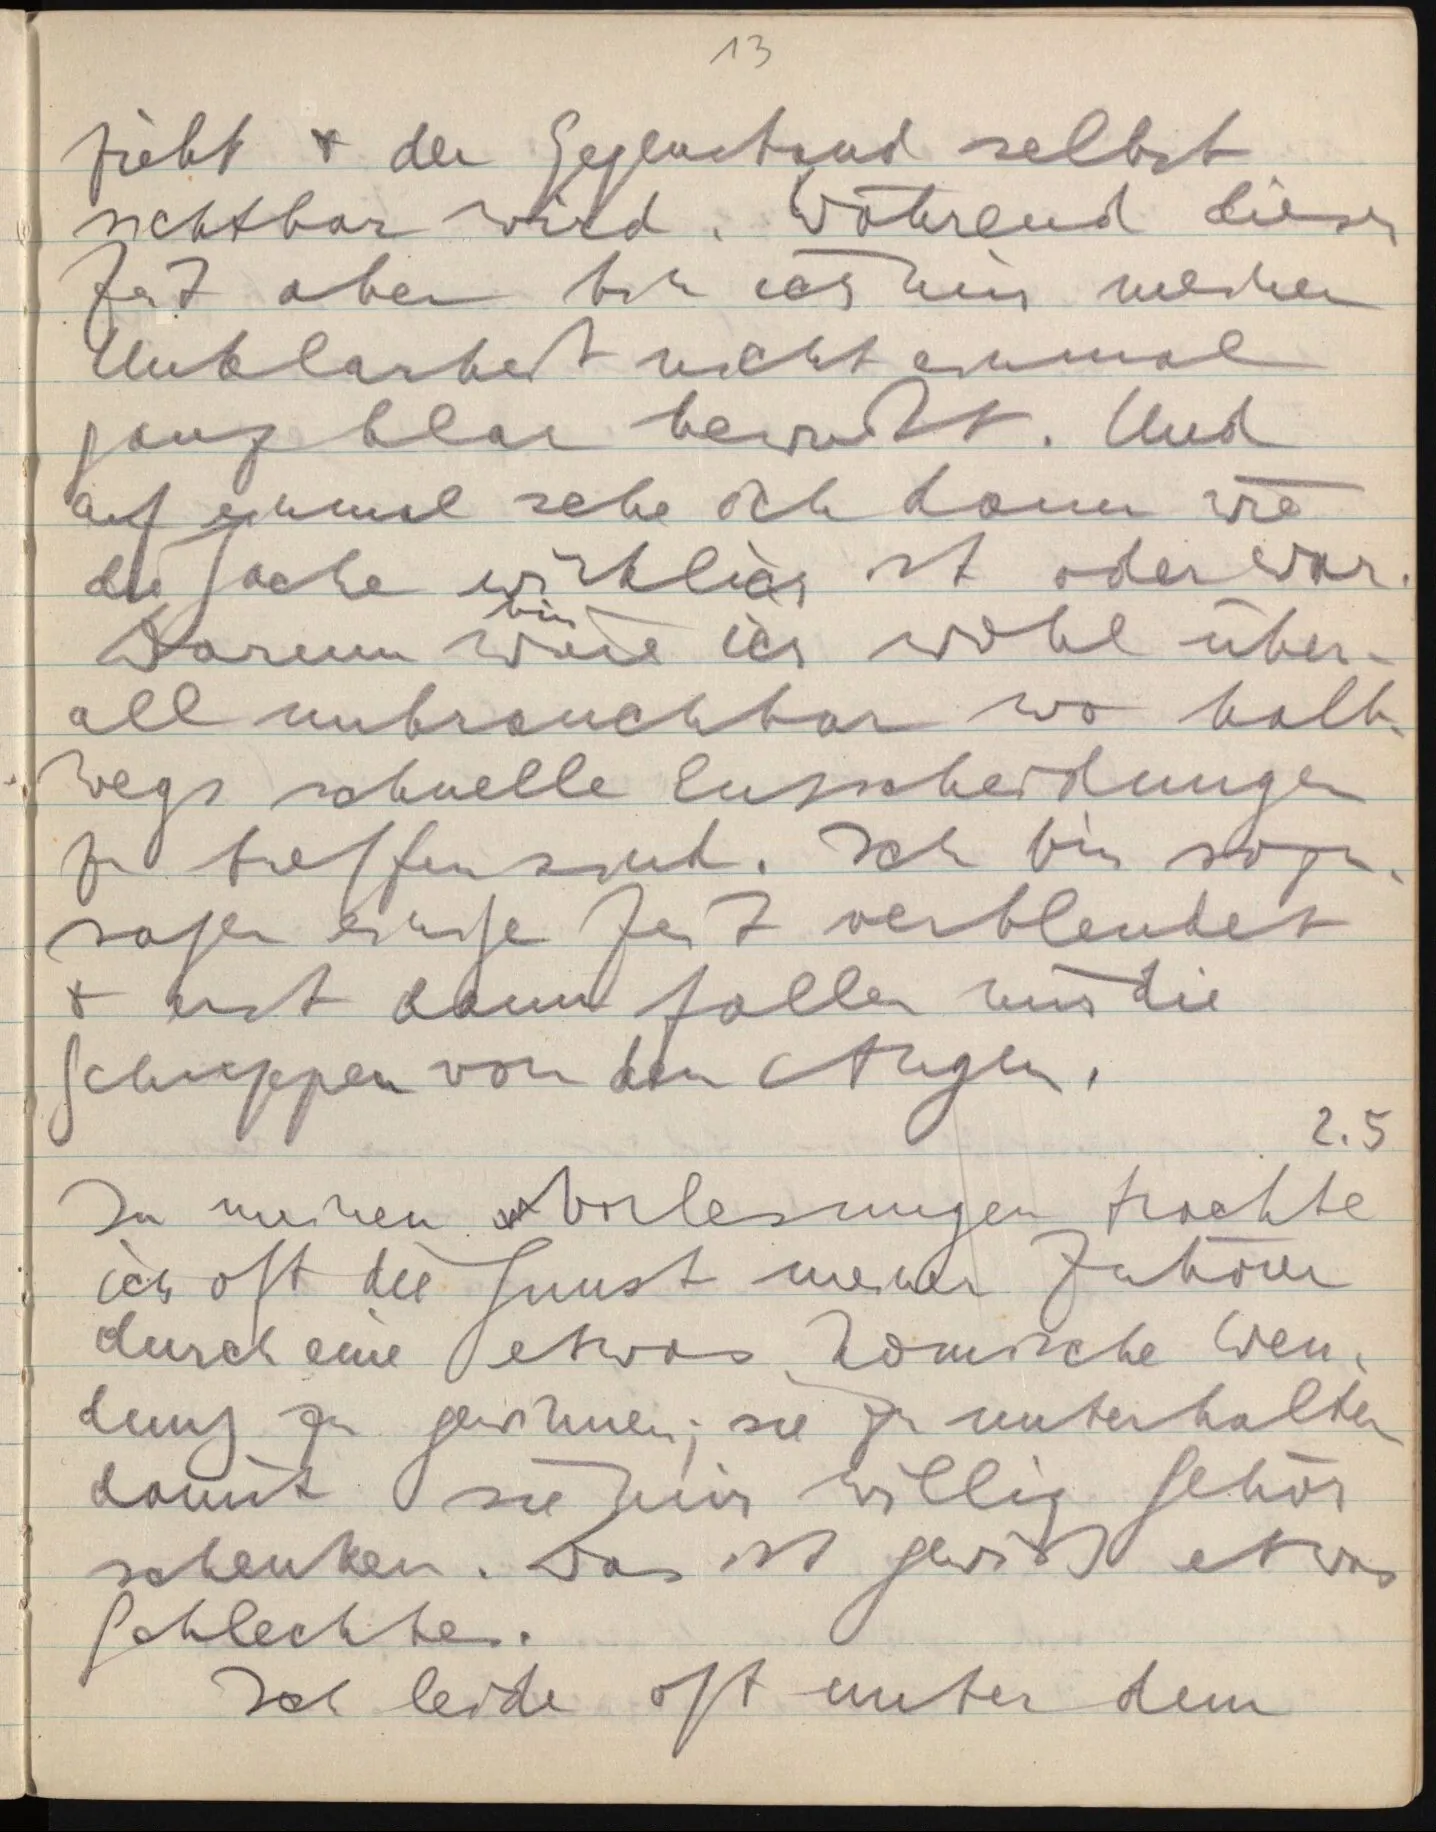 13
zieht & der Gegenstand selbst
sichtbar wird. Während dieser
Zeit aber bin ich mir meiner
Unklarheit nicht einmal
ganz klar bewußt. Und
auf einmal sehe ich dann wie
die Sache wirklich ist oder war.
bin
Darum wäre ich wohl über-
all unbrauchbar wo halb-
wegs schnelle Entscheidungen
zu treffen sind. Ich bin sozu-
sagen einige Zeit verblendet
& erst dann fallen mir die
Schuppen von den Augen.
2.5
In meinen Vorlesungen trachte
ich oft die Gunst meiner Zuhörer
durch eine etwas komische Wen-
dung zu gewinnen; sie zu unterhalten
damit sie mir willig Gehör
schenken. Das ist gewiß etwas
Schlechtes.
Ich leide oft unter dem